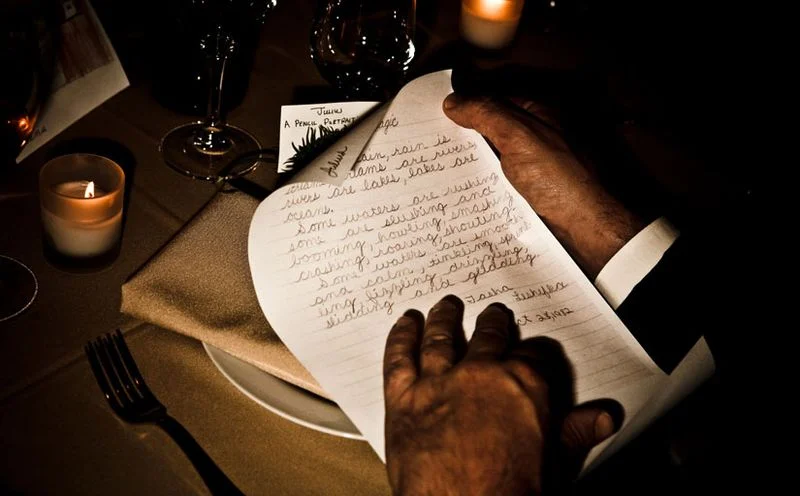 Julius
A PENCIL PORTRAIT
Julius
Magic
rain, rain is
streams, streams are rivers,
rivers are lakes, lakes are
oceans.
Some waters are rushing
some are slushing and
booming, howling, smashing
crashing, roaring, shouting.
Some waters are smooth
and calm, tinkling, sprink
ling fizzling drizzling,
slidding and glidding.
Tasha
Oct 28, 1972